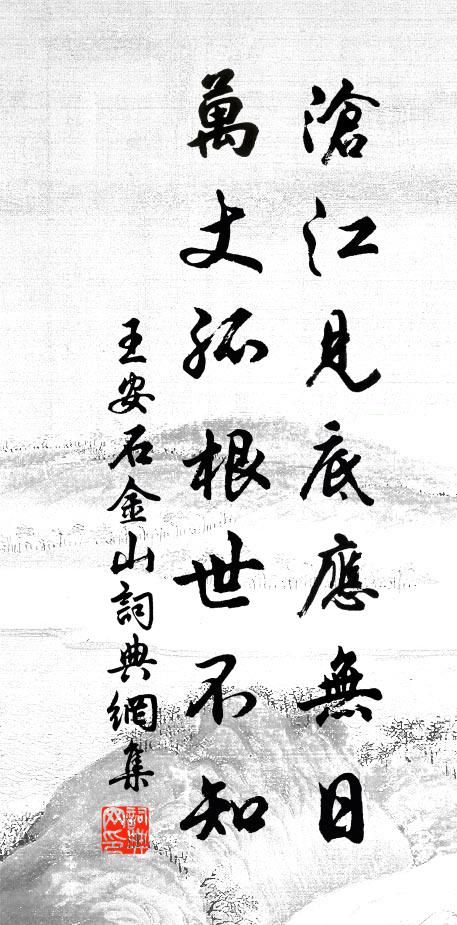 滄江見底應無日
萬丈孤根世不知
王安石金山詞典網集